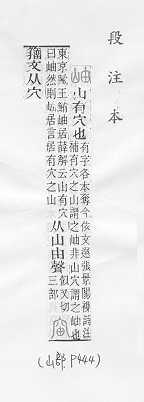 段注本
岫 山有穴也 有字各本奪今依文選張景陽襍詩注
補有穴之山謂之岫非山穴謂之岫也
東京賦王鮪岫居薛解云山有穴
曰岫然則岫居言居有穴之山
从山由聲 似又切
三部
籒文从穴
(山部 P444)